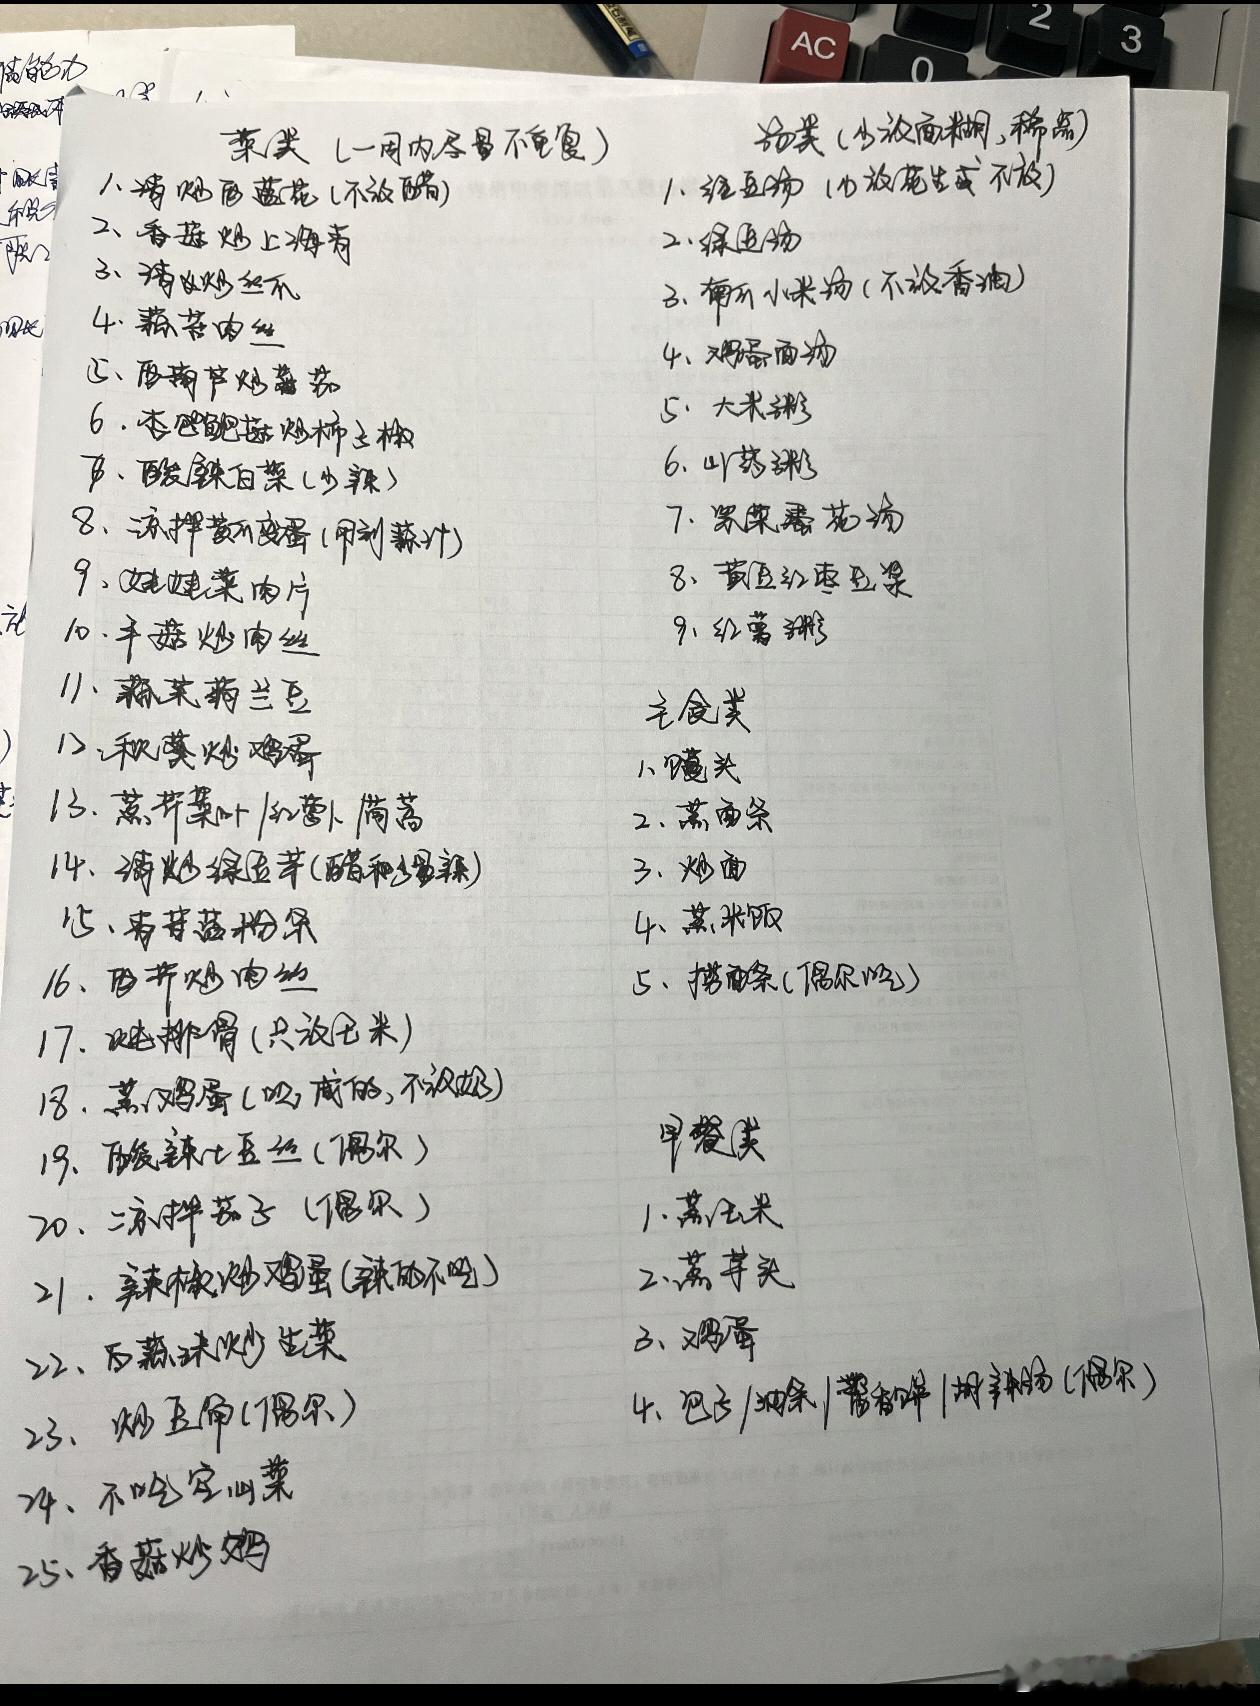 菜类（一周内尽量不重复）
1、清炒西蓝花（不放醋）
2、香菇炒上海青
3、清炒丝瓜
4、蒜苔肉丝
5、西葫芦炒番茄
6、杏鲍菇炒柿子椒
7、酸辣白菜（少辣）
8、凉拌黄瓜变蛋（用到蒜汁）
9、娃娃菜肉片
10、平菇炒肉丝
11、蒜茸荷兰豆
12、秋葵炒鸡蛋
13、蒸芹菜叶/红萝卜/茼蒿
14、清炒绿豆芽（醋和少量辣）
15、青芥蓝粉条
16、西芹炒肉丝
17、炖排骨（只放玉米）
18、蒸鸡蛋（吃咸的，不放奶）
19、酸辣土豆丝（偶尔）
20、凉拌茄子（偶尔）
21、辣椒炒鸡蛋（辣的不吃）
22、百蒜末炒生菜
23、炒豆角（偶尔）
24、不吃空心菜
25、香菇炒鸡
汤类（少放面糊，稀点）
1、红豆汤（少放花生或不放）
2、绿豆汤
3、南瓜小米汤（不放香油）
4、鸡蛋面汤
5、大米粥
6、山药粥
7、紫菜蛋花汤
8、黄豆红枣豆浆
9、红薯粥
主食类
1、馒头
2、蒸面条
3、炒面
4、蒸米饭
5、捞面条（偶尔吃）
早餐类
1、蒸玉米
2、蒸芋头
3、鸡蛋
4、包子/油条/酱香饼/胡辣汤（偶尔）
AC
0
2
3